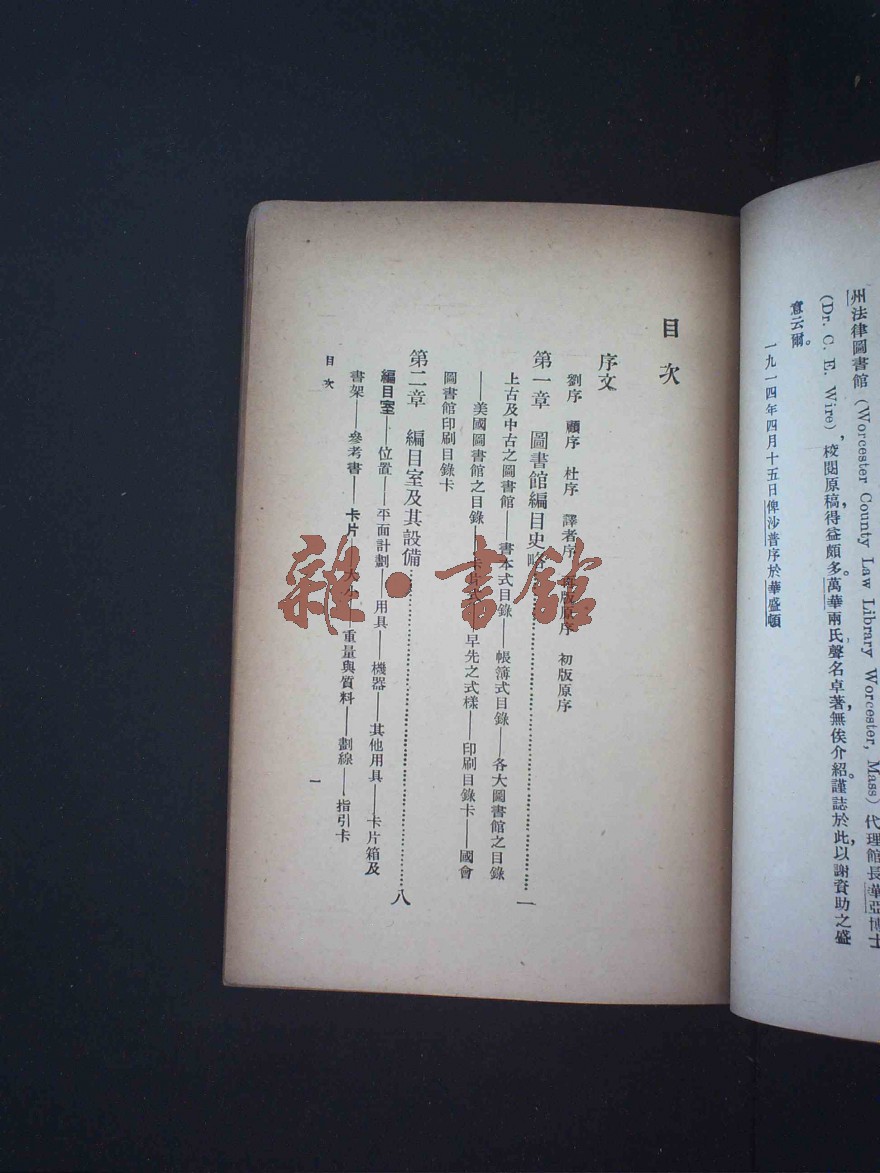 州法律圖書館 (Worcester County Law Library Worcester, Mass) 代理館長華亞博士
(Dr. C. E. Wire)，校閱原稿得益頗多。萬華兩氏聲名卓著，無俟介紹，謹誌於此，以謝資助之盛
意云爾。
一九一四年四月十五日俾沙普序於華盛頓
目次
序文
劉序 顧序 杜序 譯者序 再版原序 初版原序
第一章 圖書館編目史略……一
上古及中古之圖書館——書本式目錄——帳簿式目錄——各大圖書館之目錄
——美國圖書館之目錄——卡片式——早先之式樣——印刷目錄卡——國會
圖書館印刷目錄卡
第二章 編目室及其設備……八
編目室——位置——平面計劃——用具——機器——其他用具——卡片箱及
書架——參考書——卡片——大小——重量與質料——劃線——指引卡
目次
一
雜·書館